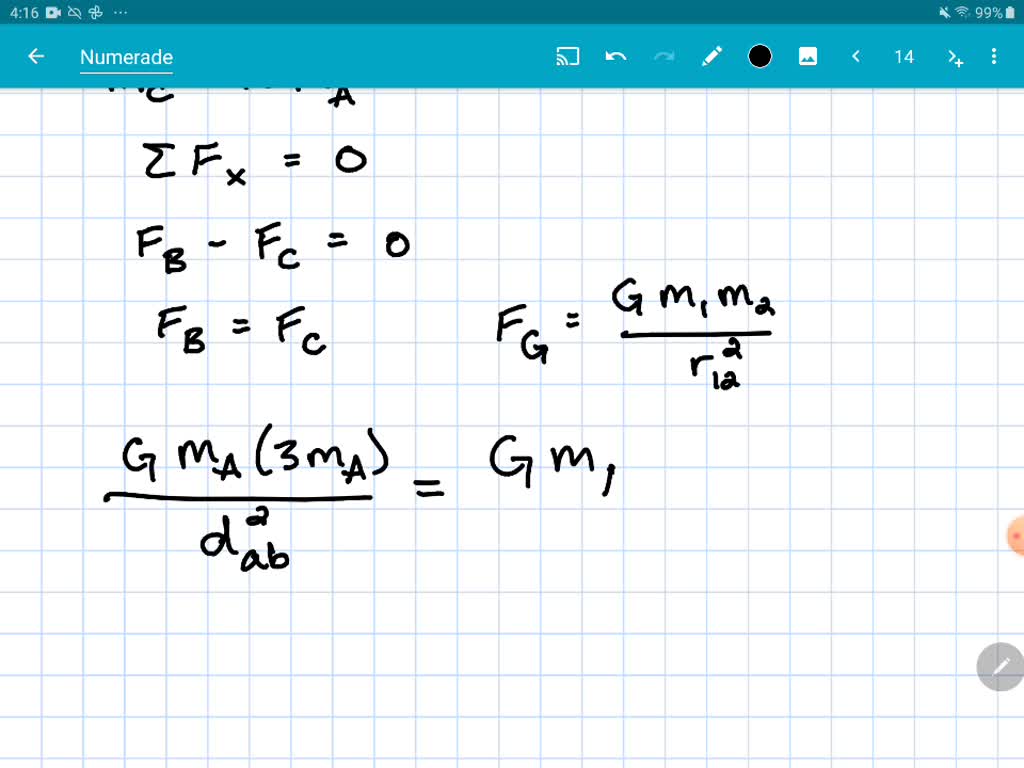 4:16 ... 99%
Numerade 14
A
Σ Fx = 0
FB - FC = 0
FB = FC
FG = G m1 m2 / r12^2
G mA (3 mA) / dab^2 = G m,